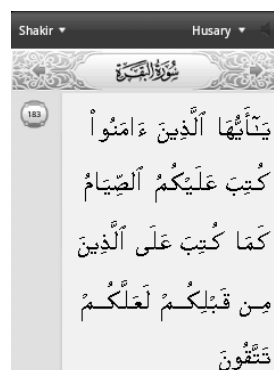 Shakir Husary
سُورَةُ البَقَرَةِ
183
يَـٰٓأَيُّهَا ٱلَّذِينَ ءَامَنُوا۟
كُتِبَ عَلَيْكُمُ ٱلصِّيَامُ
كَمَا كُتِبَ عَلَى ٱلَّذِينَ
مِن قَبْلِكُمْ لَعَلَّكُمْ
تَتَّقُونَ